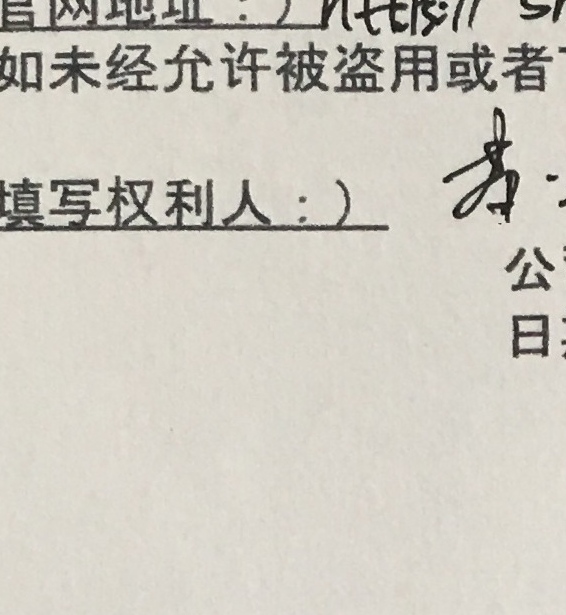 官网地址：）https://
如未经允许被盗用或者
填写权利人：）
公
日